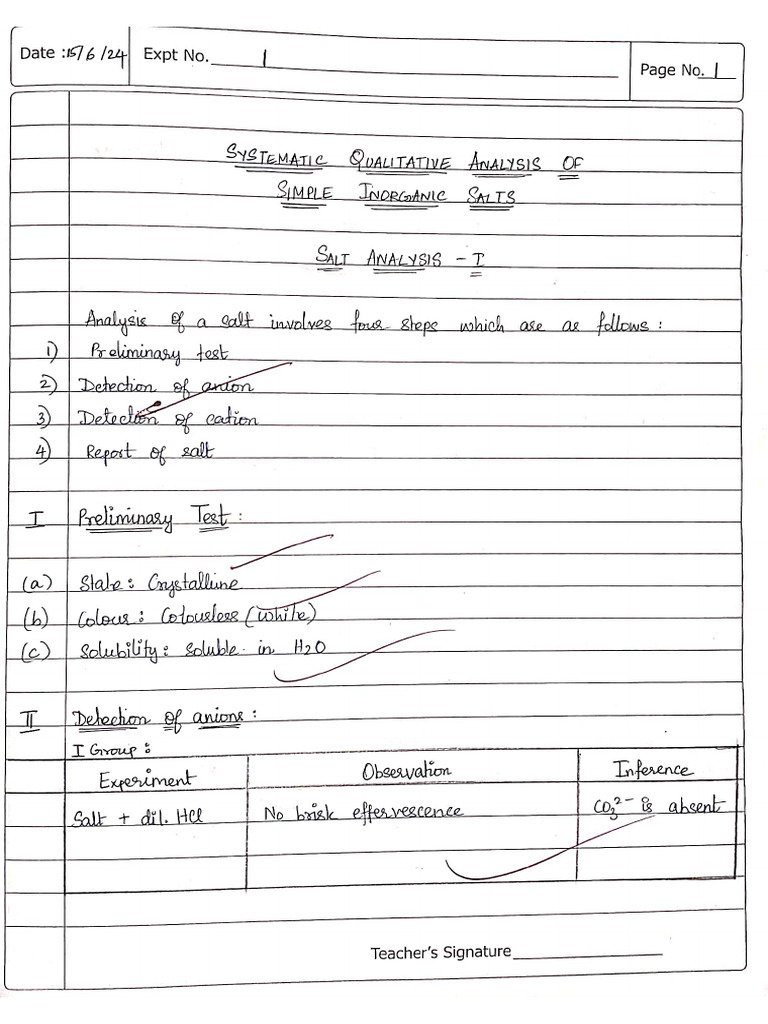 Date : 15/6/24 Expt No. 1 Page No. 1
SYSTEMATIC QUALITATIVE ANALYSIS OF
SIMPLE INORGANIC SALTS
SALT ANALYSIS - I
Analysis of a salt involves four steps which are as follows :
1) Preliminary test
2) Detection of anion
3) Detection of cation
4) Report of salt
I Preliminary Test :
(a) State : Crystalline
(b) Colour : Colourless (white)
(c) Solubility : Soluble in H2O
II Detection of anions :
I Group :
Experiment Observation Inference
Salt + dil. HCl No brisk effervescence CO₃²⁻ is absent
Teacher's Signature